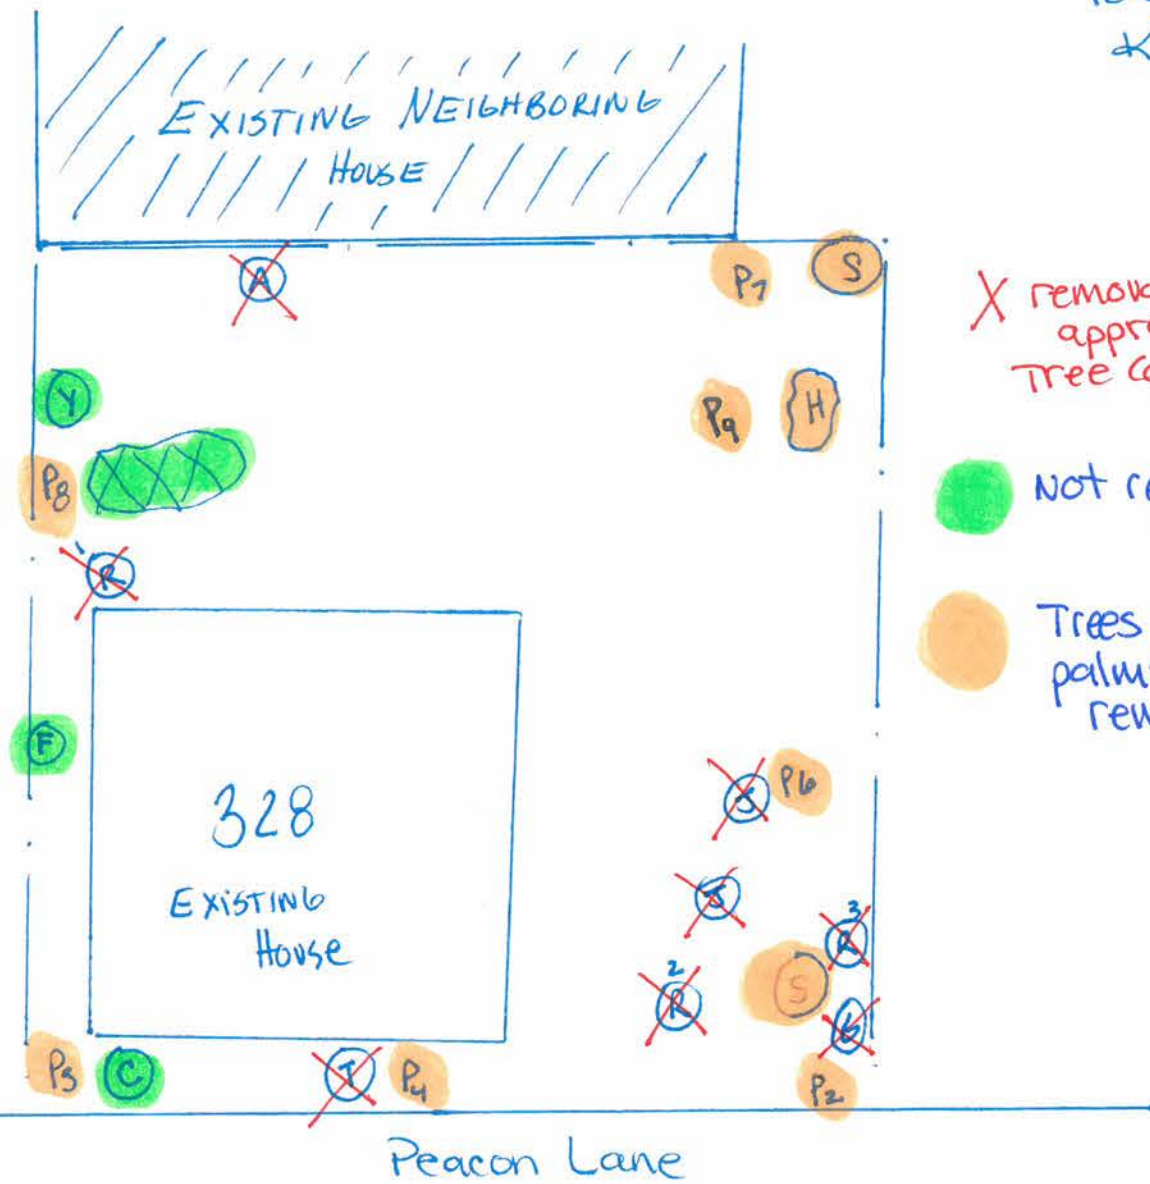 EXISTING NEIGHBORING
HOUSE
A
P7
S
X remov
appr
Tree
Y
P9
H
P8
Not re
R
Trees
palm
F
328
EXISTING
House
P6
J
J
3
R
2
R
S
G
P5
C
T
P4
P2
Peacon Lane